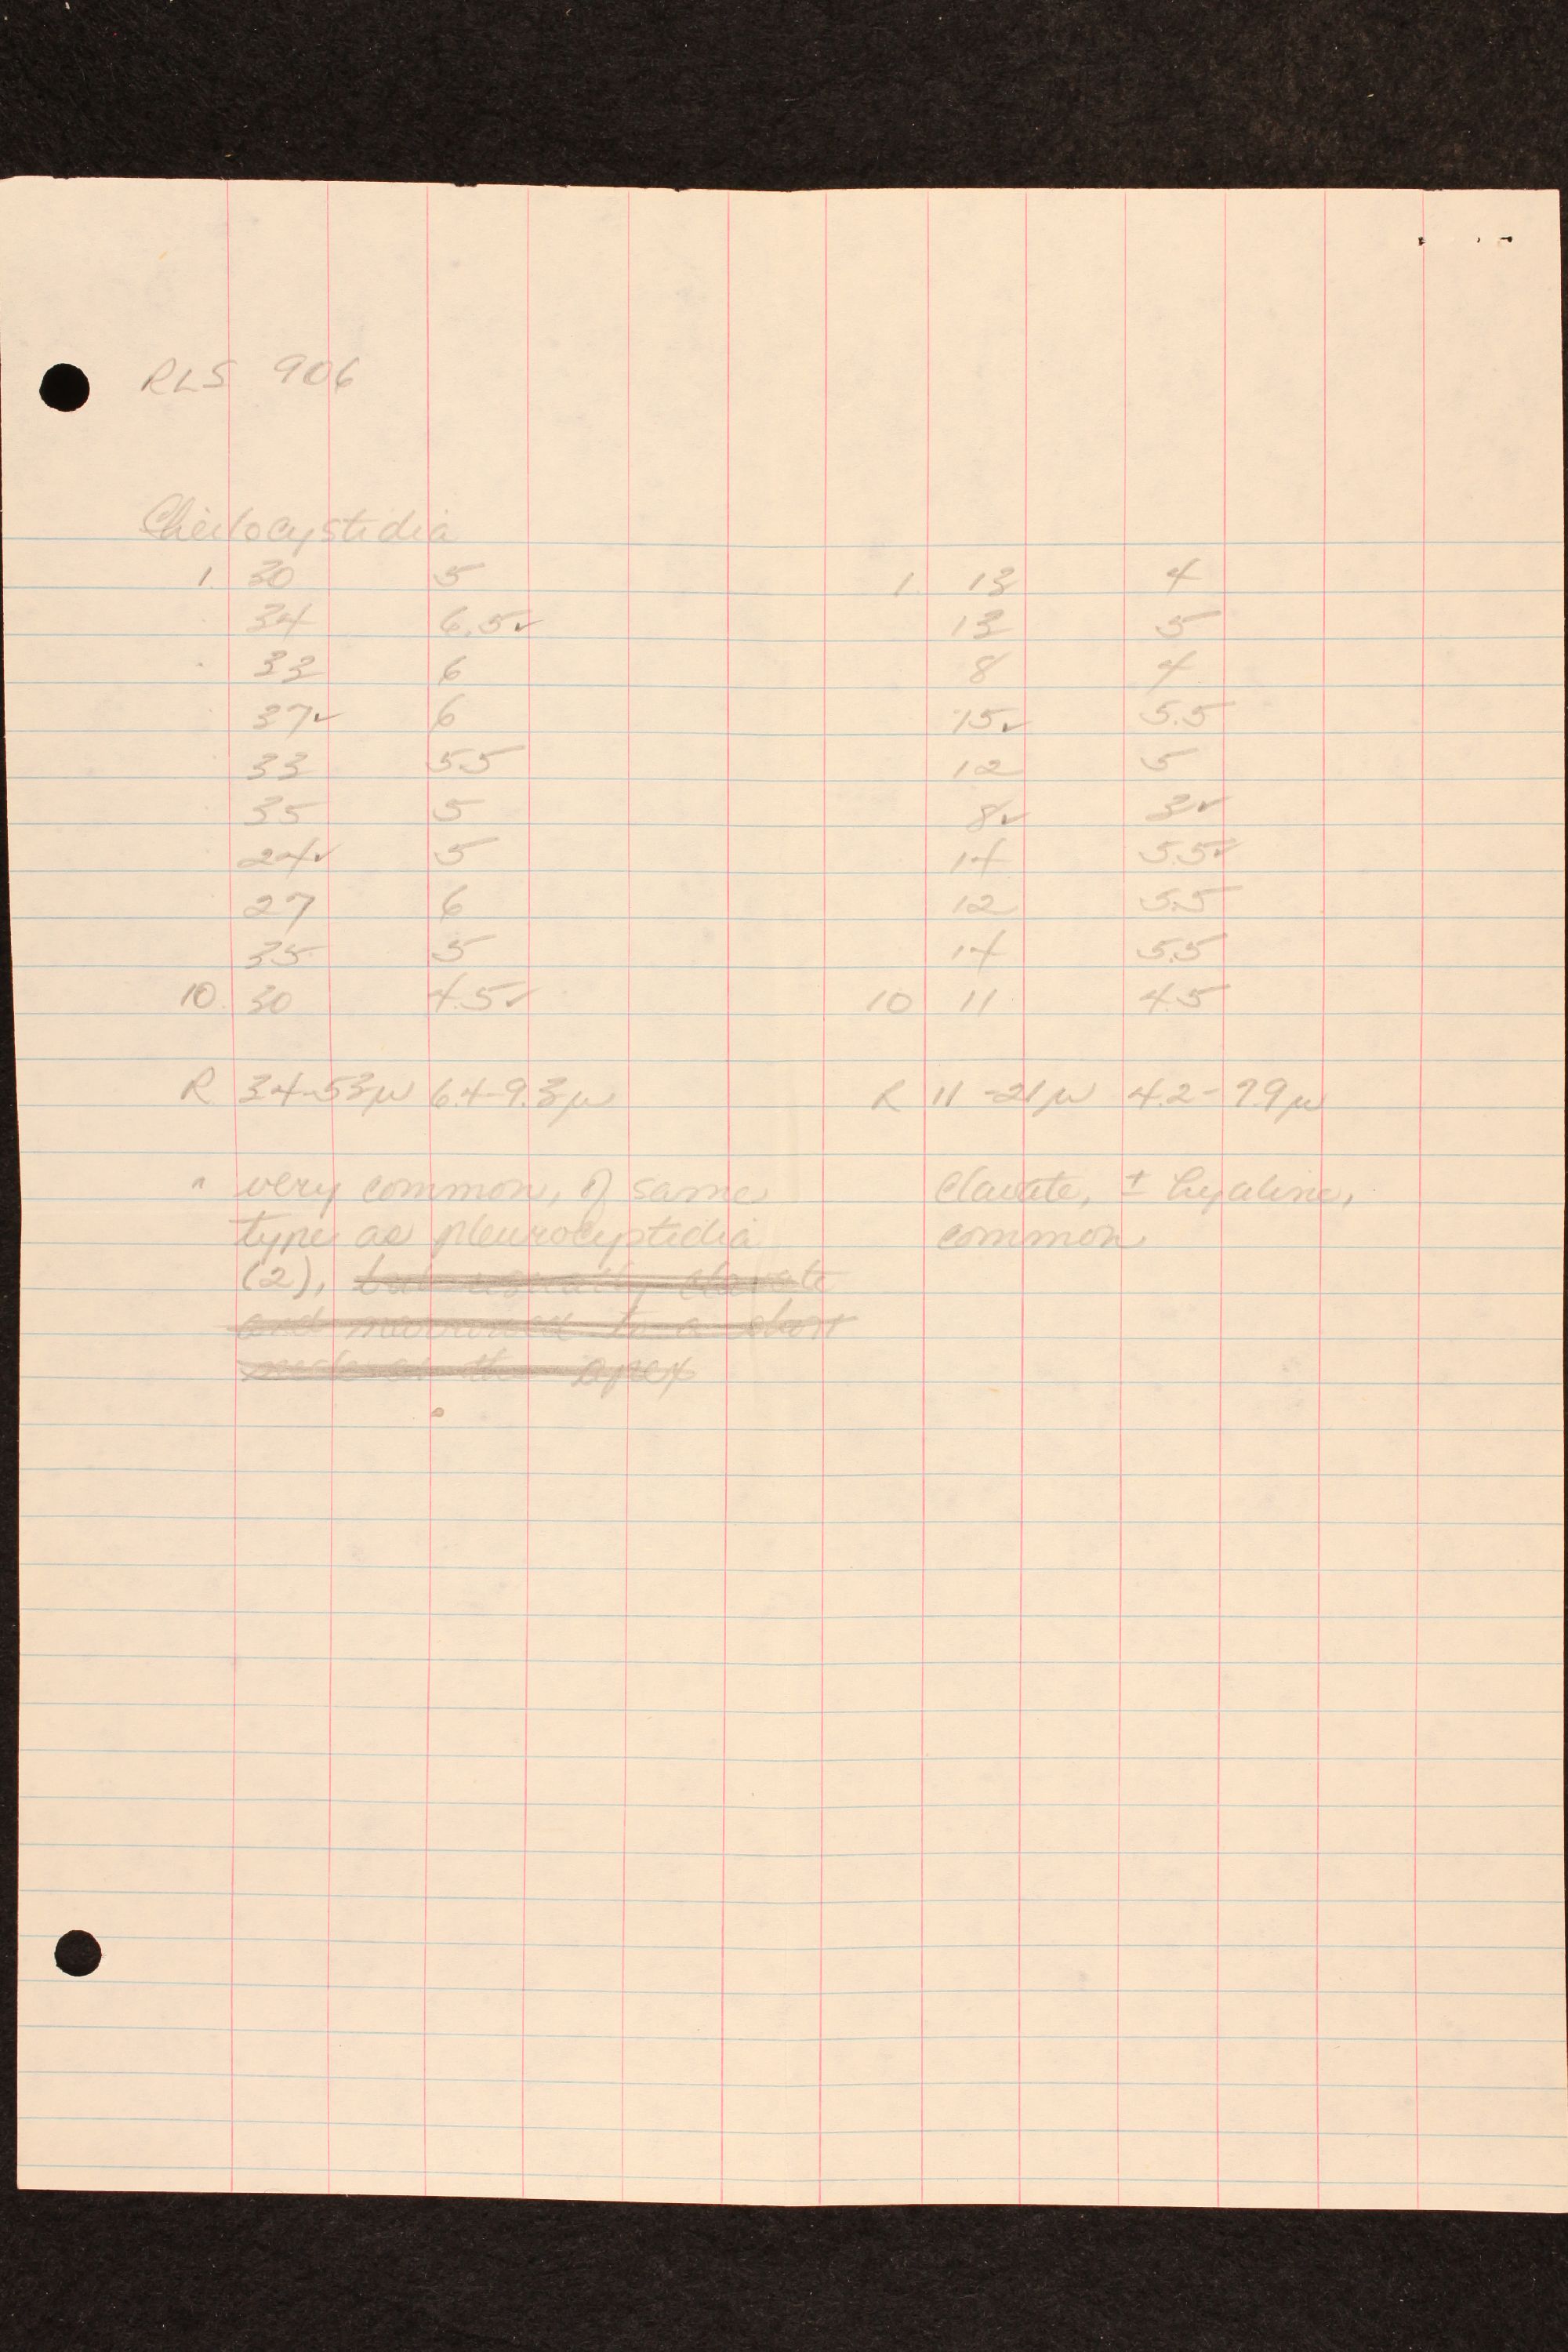 RLS 906
Cheilocystidia
1. 30 5 1. 13 4
34 6.5✓ 13 5
33 6 8 4
37✓ 6 15✓ 5.5
33 5.5 12 5
35 5 8✓ 3✓
24✓ 5 14 5.5✓
27 6 12 5.5
35 5 14 5.5
10. 30 4.5✓ 10 11 4.5
R 34-53µ 6.4-9.3µ R 11-21µ 4.2-7.9µ
" very common, of same clavate, ± hyaline,
type as pleurocystidia common
(2), but usually clavate
and narrowed to a short
neck at the apex